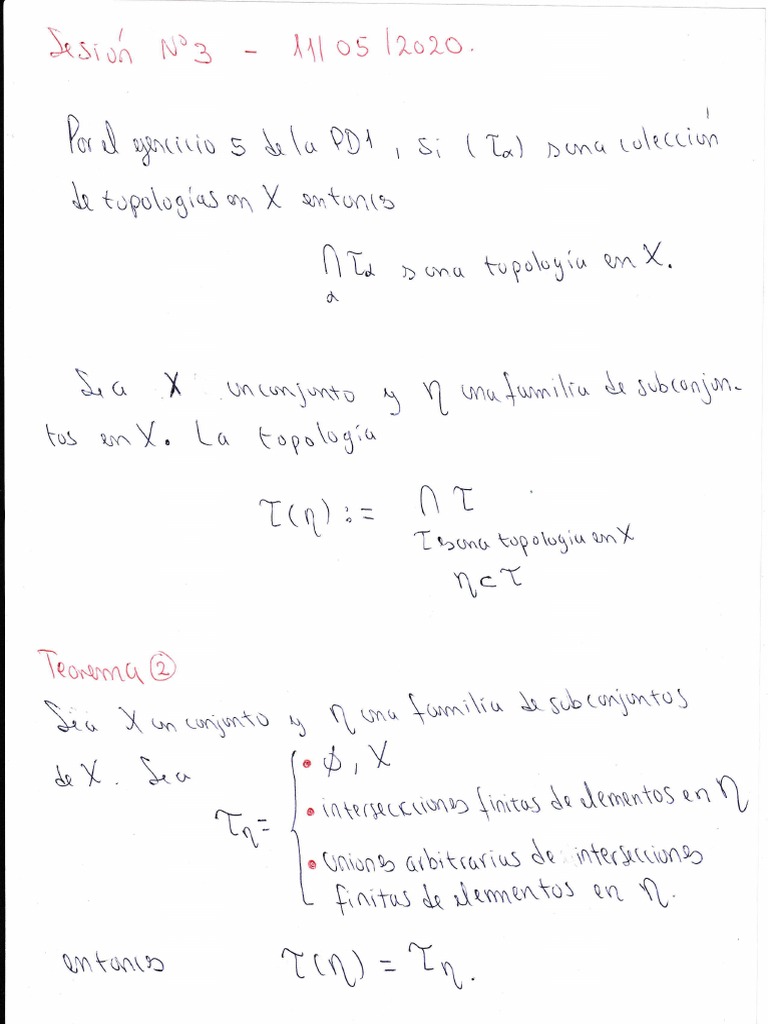 Sesión Nº3 - 11/05/2020.
Por el ejercicio 5 de la PD1, si (τα) es una colección
de topologías en X entonces
∩ τα es una topología en X.
α
Sea X un conjunto y η una familia de subconjun-
tos en X. La topología
τ(η) := ∩ τ
τ es una topología en X
η ⊂ τ
Teorema ②
Sea X un conjunto y η una familia de subconjuntos
de X. Sea
τη = { • ∅, X
• intersecciones finitas de elementos en η
• uniones arbitrarias de intersecciones
finitas de elementos en η.
entonces τ(η) = τη.